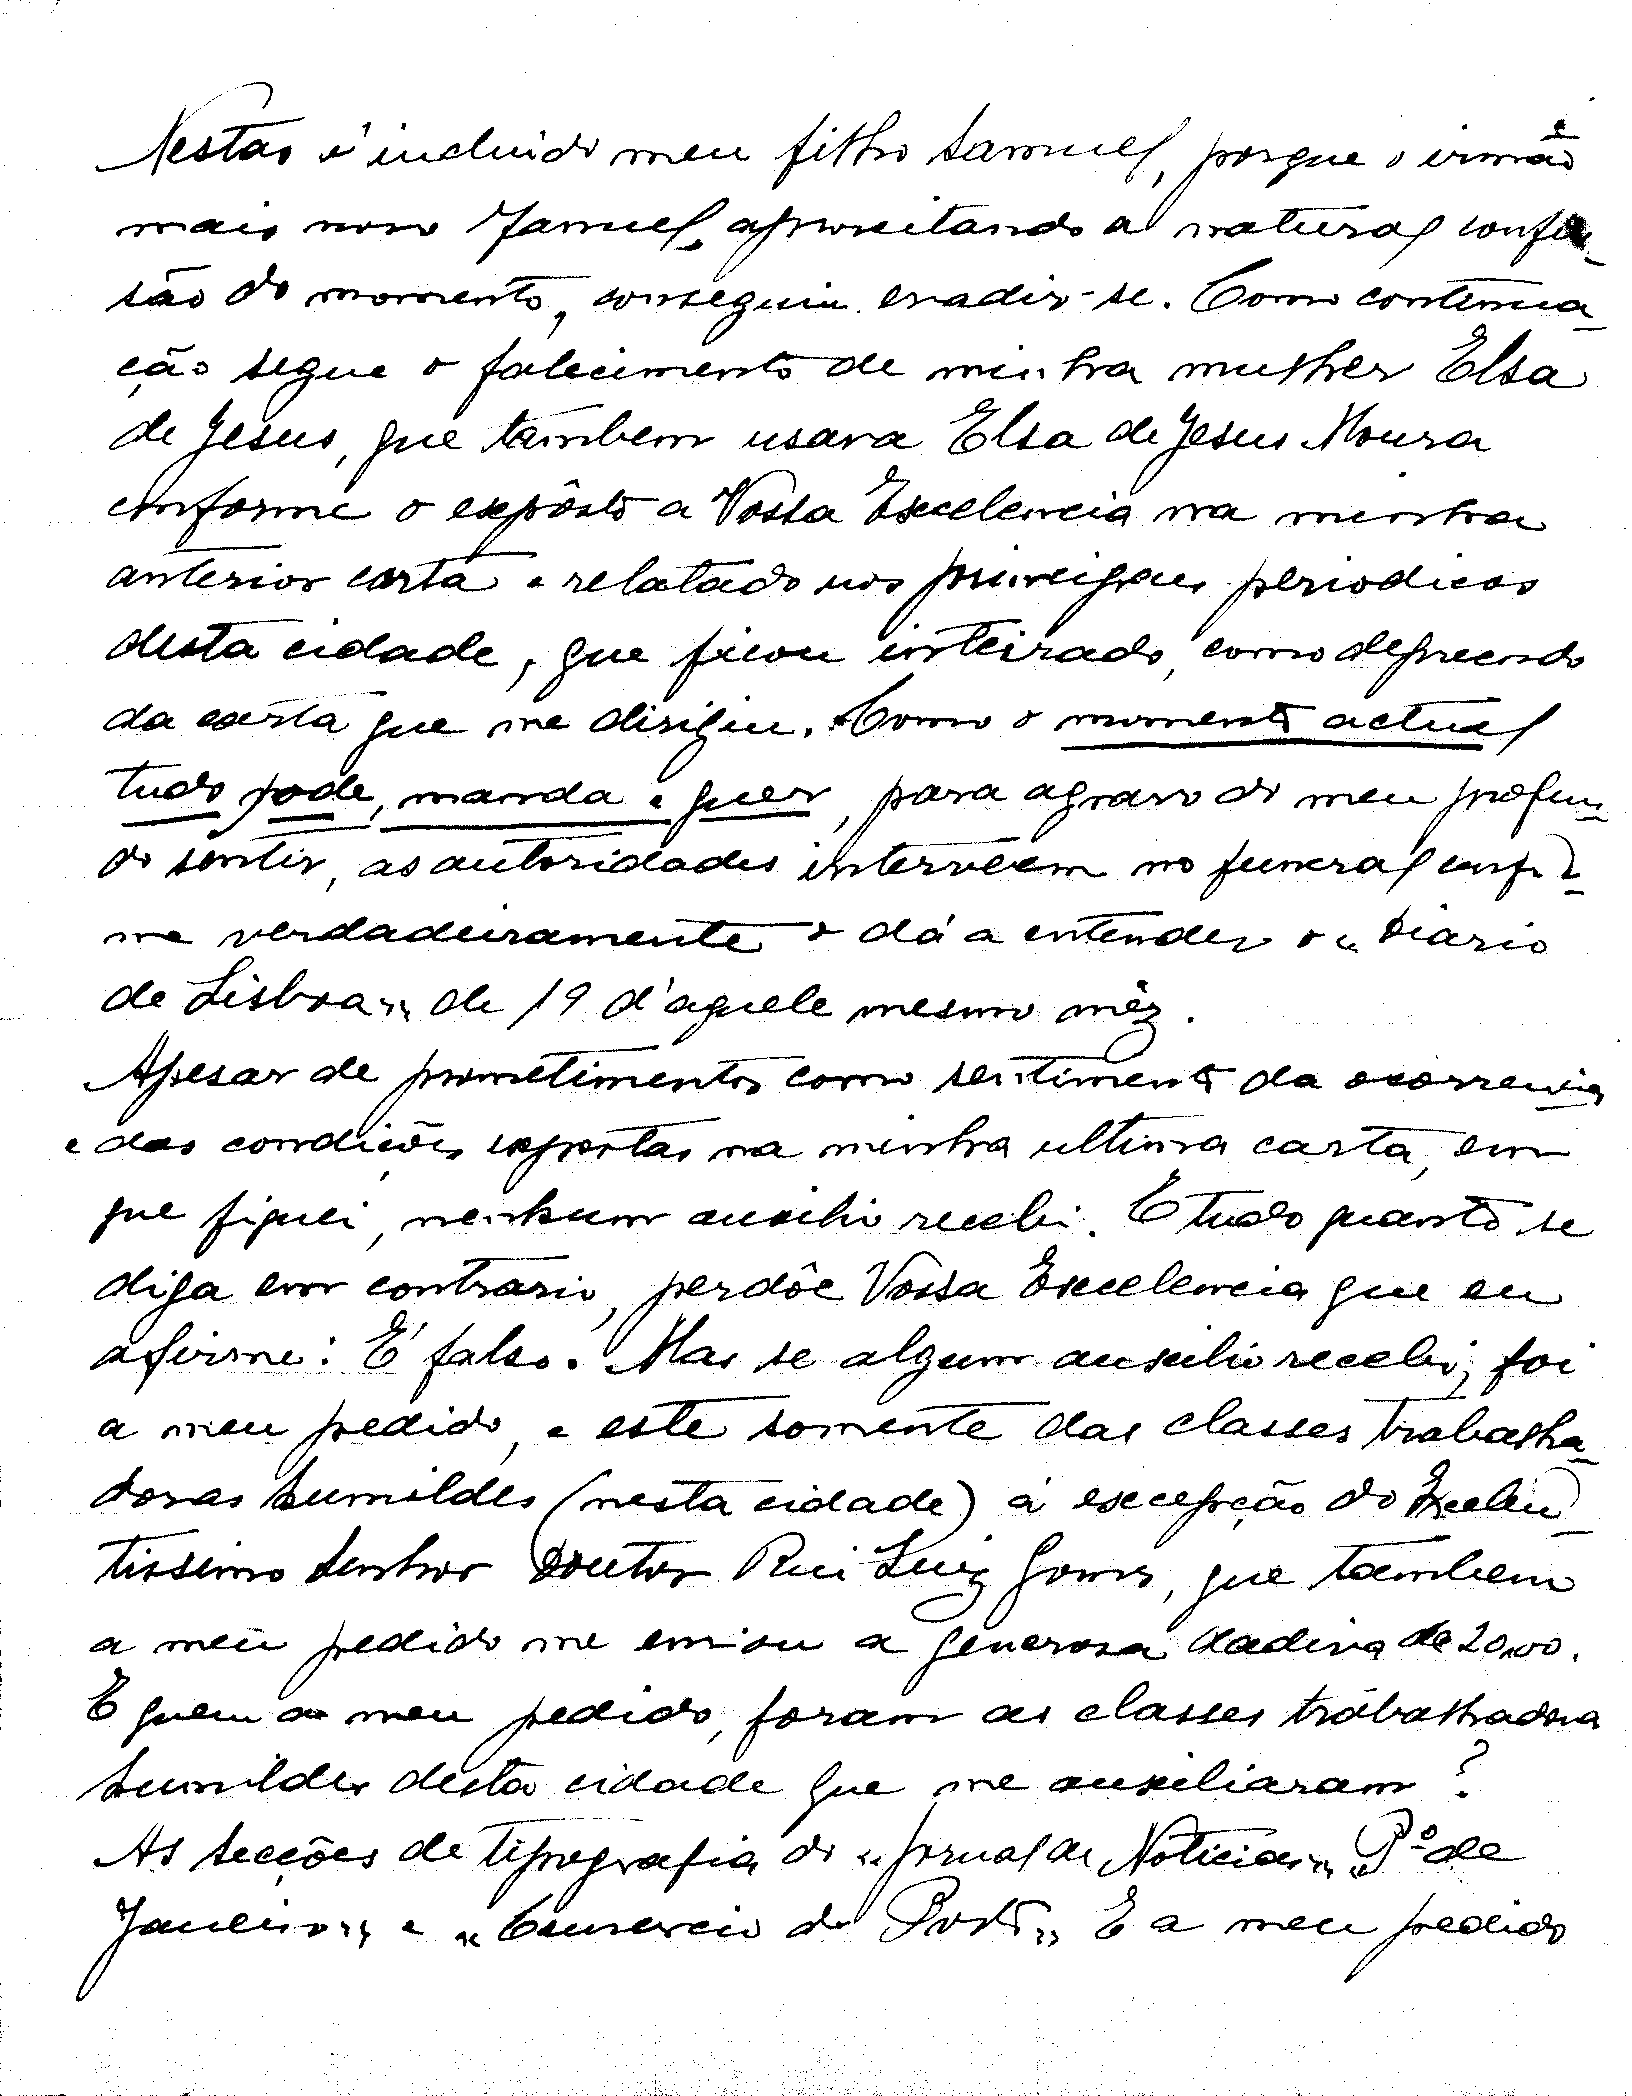 Nestas é incluido meu filho Samuel, porque o irmão
mais novo Jamuel, aproveitando a natural confu-
são do momento, conseguiu evadir-se. Como continua-
ção segue o falecimento de minha mulher Elsa
de Jesus, que tambem usava Elsa de Jesus Moura
conforme o expôsto a Vossa Excelencia na minha
anterior carta e relatado nos principaes periodicos
desta cidade, que ficou inteirado, como depreendo
da carta que me dirigiu. Como o momento actual
tudo pode, manda e quer, para agravo do meu profun-
do sentir, as autoridades intervéem no funeral confor-
me verdadeiramente o dá a entender o „Diario
de Lisboa„ de 19 d'aquele mesmo mêz.
Apesar de prometimentos como sentimento da ocorrencia
e das condições expostas na minha ultima carta, em
que fiquei, nenhum auxilio recebi. E tudo quanto se
diga em contrario, perdôe Vossa Excelencia que eu
afirme: É falso. Mas se algum auxilio recebi, foi
a meu pedido, e este somente das classes trabalha-
doras humildes (nesta cidade) á excepção do Excelen-
tissimo Senhor Doutor Rui Luiz Gomes, que tambem
a meu pedido me enviou a generosa dadiva de 20,00.
E quem a meu pedido, foram as classes trabalhadora
humildes desta cidade que me auxiliaram?
As secções de tipografia do „Jornal de Noticias„ „P.º de
Janeiro„ e „Comercio do Porto„ E a meu pedido